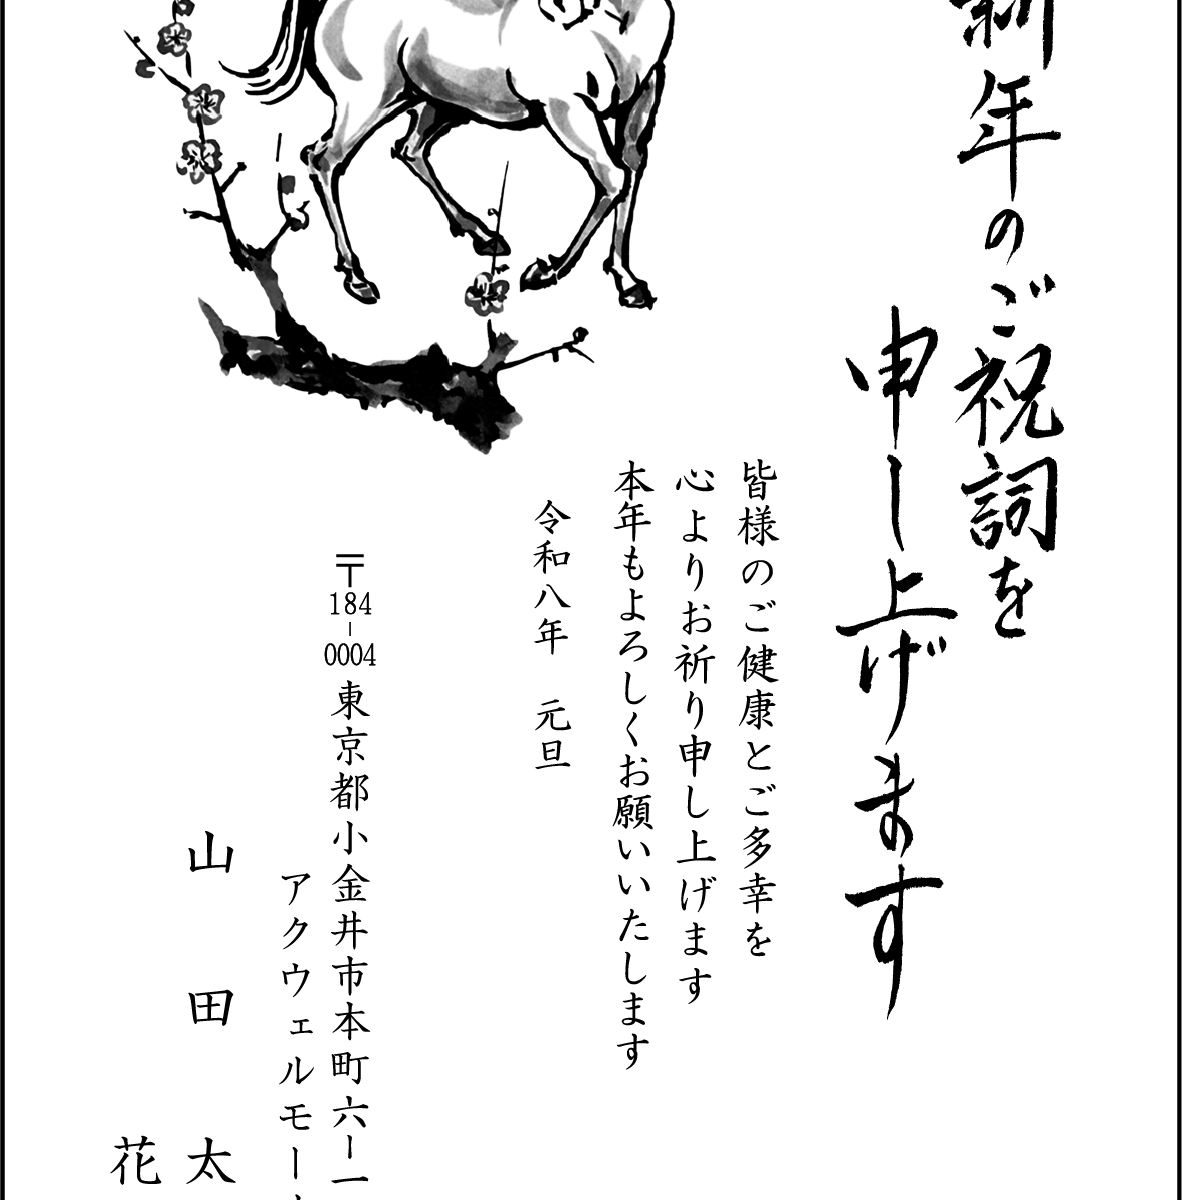 新年のご祝詞を
申し上げます
皆様のご健康とご多幸を
心よりお祈り申し上げます
本年もよろしくお願いいたします
令和八年　元旦
〒184-0004 東京都小金井市本町六ー一
アクウェルモー
山田 太
花